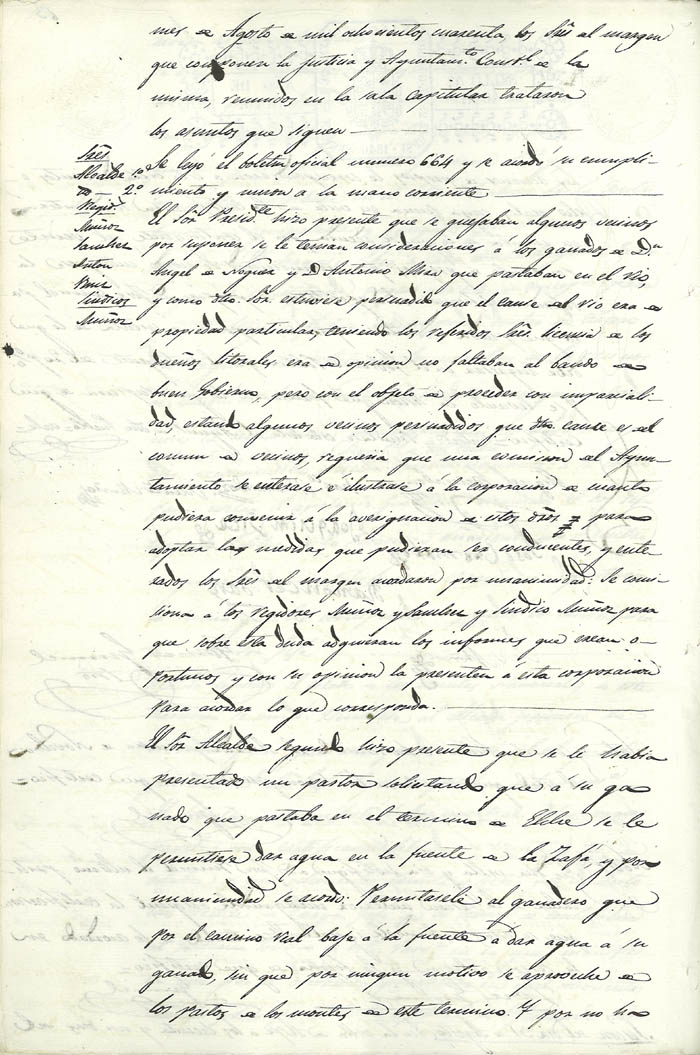 mes de Agosto de mil ochocientos cuarenta los Sres. del margen
que componen la Justicia y Ayuntam.to Const.l de la
misma, reunidos en la sala capitular trataron
los asuntos que siguen
Sres
Alcalde 1.o
D.o — 2.o
Regid.s
Muñoz
Sanchez
Anton
Ruiz
Sindicos
Muñoz
Se leyó el boletin oficial numero 664 y se acordó su cumpli-
miento y union á la mano corriente
El Sor. Presid.te hizo presente que se quejaban algunos vecinos
por suponer se le tenian consideraciones á los ganados de D.n
Angel de Noguera y D. Antonio Mira que pastaban en el rio,
y como dho. Sor. estuviese persuadido que el cause del rio era de
propiedad particular, teniendo los referidos Sres. licencia de los
dueños litorales era de opinion no faltaban al bando de
buen Gobierno, pero con el objeto de proceder con imparciali-
dad, estando algunos vecinos persuadidos que dho. cause es del
comun de vecinos, requeria que una comision del Ayun-
tamiento se enterase é ilustrase á la corporacion de cuanto
pudiera convenir á la averiguacion de estos dros para
adoptar las medidas que pudieran ser conducentes, y ente-
rados los Sres del margen acordaron por unanimidad: Se comi-
siona á los regidores Muñoz y Sanchez y Sindico Muñoz para
que sobre esta duda adquieran los informes que crean o-
portunos y con su opinion la presenten á esta corporacion
para acordar lo que corresponda.
El Sor Alcalde segundo hizo presente que se le habia
presentado un pastor solicitando que á su ga
nado que pastaba en el termino de Elche se le
permitiese dar agua en la fuente de la Zafa, y por
unanimidad se acordo: Permitasele al ganadero que
por el camino real baje á la fuente á dar agua á su
ganado, sin que por ningun motivo se aproveche de
los pastos de los montes de este termino. Y por no ha